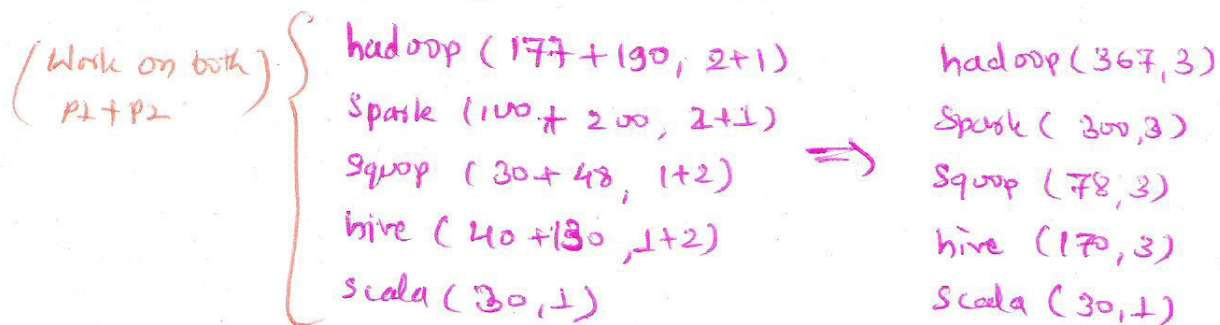 (Work on both P1+P2)
hadoop (177+190, 2+1)
Spark (100+ 200, 2+1)
Sqoop (30+48, 1+2)
hive (40+130, 1+2)
scala (30,1)
⇒
hadoop (367,3)
Spark (300,3)
Sqoop (78,3)
hive (170,3)
Scala (30,1)